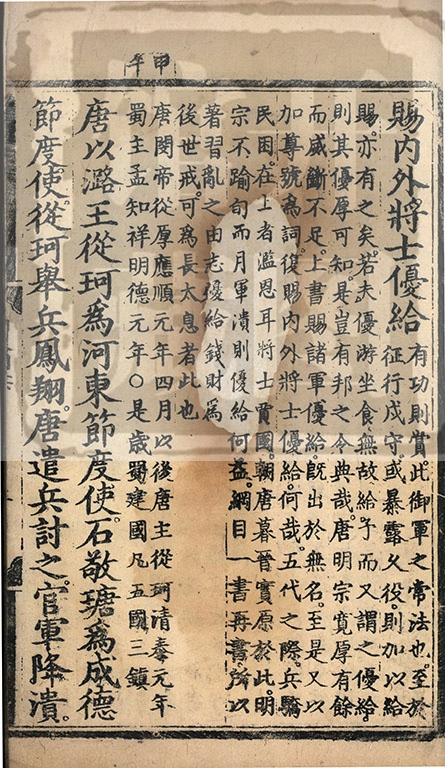 賜內外將士優給
有功則賞此御軍之常法也。至於
征行戍守。或暴露久役。則加以給
賜。亦有之矣。若夫優游坐食。無故給予。而又謂之優給。
則其優厚可知。是豈有邦之令典哉。唐明宗寬厚有餘
而威斷不足。上書賜諸軍優給。旣出於無名。至是又以
加尊號為詞。復賜內外將士優給。何哉。五代之際。兵驕
民困。在上者濫恩耳。將士賈國。朝唐暮晉。實原於此。明
宗不踰旬而月軍潰。則優給何益。綱目一書再書。所以
著習亂之由。志擾給錢財。為
後世戒。可為長太息者此也
甲午
唐閔帝從厚應順元年四月以後唐主從珂清泰元年
蜀主孟知祥明德元年○是歲蜀建國凡五國三鎮
唐以潞王從珂為河東節度使。石敬瑭為成德
節度使。從珂舉兵鳳翔。唐遣兵討之。官軍降潰。